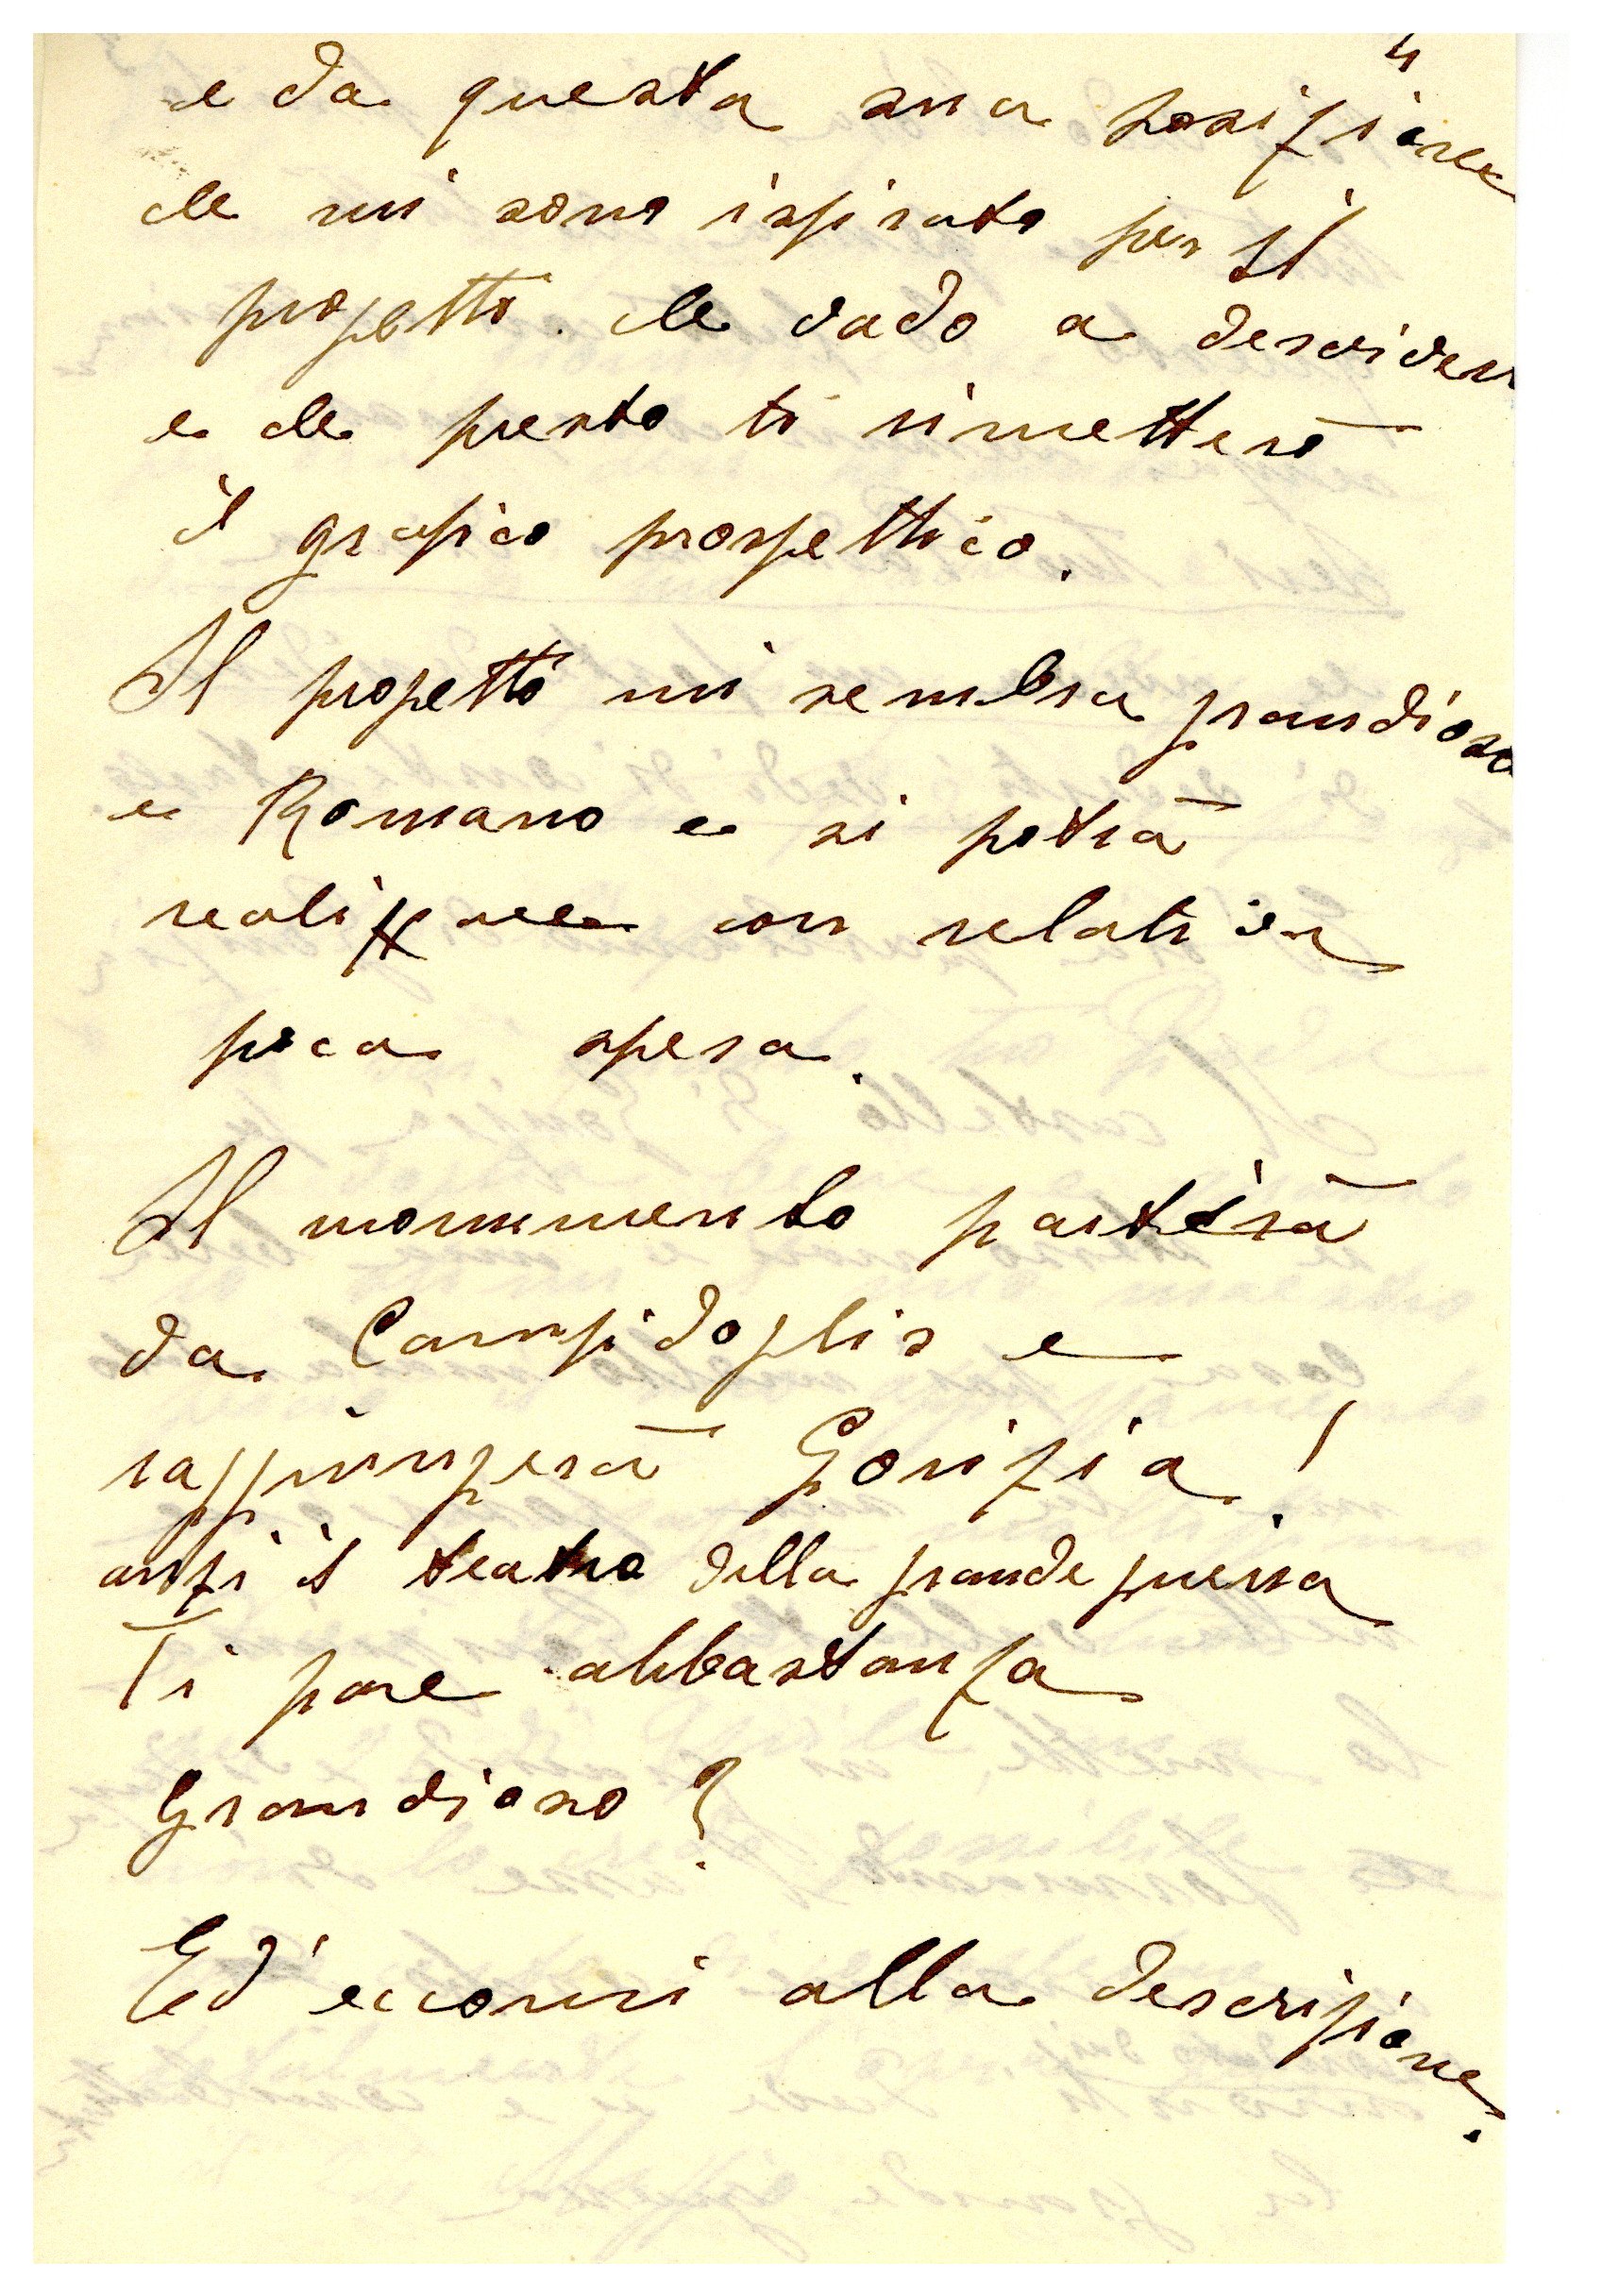 4
e da questa sua posizione
che mi sono ispirato per il
progetto che vado a descriver
e che presto ti rimetterò
il grafico prospettico.
Il progetto mi sembra grandioso
e Romano e si potrà
realizzare con relativa
poca spesa.
Il monumento partirà
da Campidoglio e
raggiungerà Gorizia!
anzi il teatro della grande guerra
Ti pare abbastanza
Grandioso?
Ed eccomi alla descrizione.